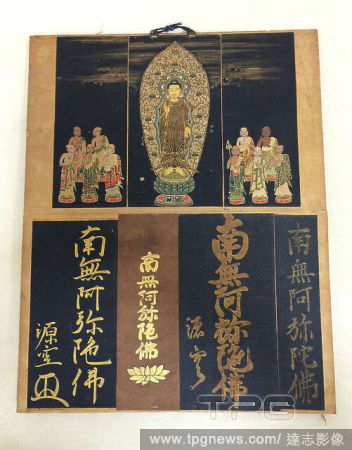 南無阿弥陀佛
源空
南無阿弥陀佛
南無阿弥陀佛
源空
南無阿弥陀佛
TPG
www.tpgnews.com/達志影像